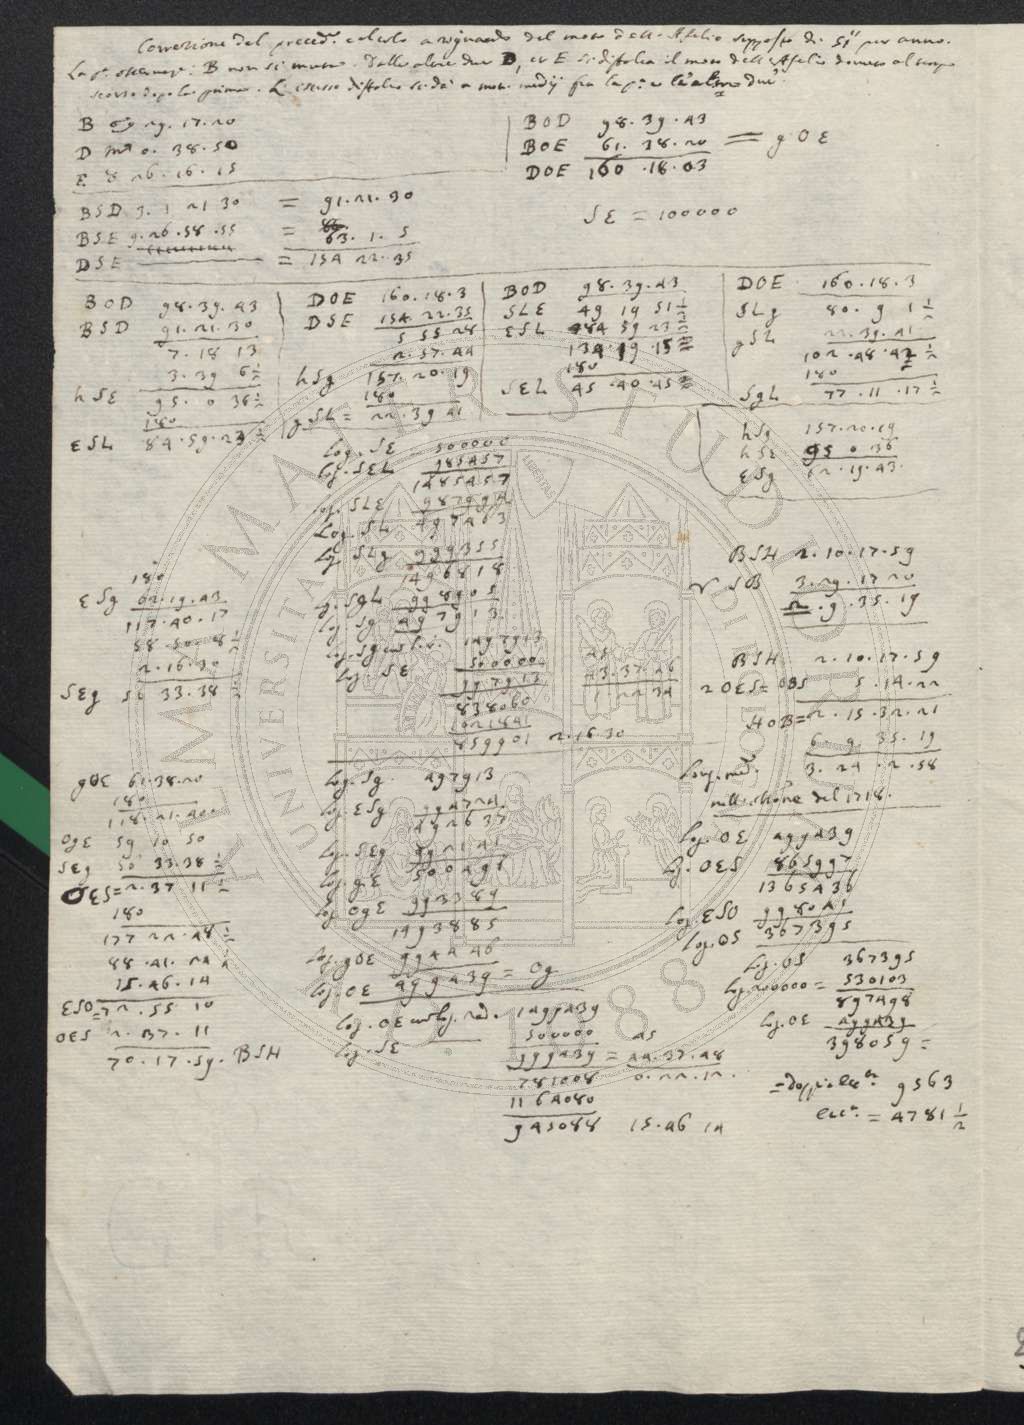 Correzione del preced.e calcolo a riguardo del moto dell'Afelio supposto di 51" per anno.
La p.a osservaz.e B non si muta. Dalle altre due D, et E si diffalca il moto dell'Afelio dovuto al tempo
scorso dopo la prima. L'istesso diffalco si dà a moti medij fra la p.a e le altre due
B 29. 17. 20
D 0. 38. 50
E 8 26. 16. 15
BOD 98. 39. 43
BOE 61. 38. 20 = gOE
DOE 160. 18. 03
BSD 3. 1 21 30 = 91. 21. 30
BSE 9. 26. 58. 55 = 63. 1. 5
DSE = 154 22. 35
SE = 100000
BOD 98. 39. 43
BSD 91. 21. 30
7. 18 13
3. 39 6 1/2
hSE 95. 0 36 1/2
180
ESL 84. 59. 23 1/2
DOE 160. 18. 3
DSE 154. 22. 35
5 55 28
2. 57. 44
hSg 157. 20. 19
180
gSL = 22. 39 41
BOD 98. 39. 43
SLE 49 19 51 1/2
ESL 84 59 23 1/2
134. 19. 15
180
SEL 45. 40. 45
DOE 160. 18. 3
SLg 80. 9 1 1/2
gSL 22. 39. 41
102. 48. 42 1/2
180
SgL 77. 11. 17 1/2
hSg 157. 20. 19
hSE 95 0 36
ESg 62. 19. 43.
Log. SE 500000
Log. SEL 985457
1485457
Log. SLE 987994
Log. SL 497463
Log. SLg 999355
1496818
Log. SgL 998905
Log. Sg 497913
1497913
Log. SE 500000
997913
838060
1021841
859901 2. 16 30
45
43. 37. 26
1. 22 34
180
ESg 62. 19. 43
117. 40. 17
58 50. 8 1/2
2. 16. 30
SEg 56 33. 38 1/2
BSH 2. 10. 17. 59
♈ SB 3. 29. 17 20
2. 9. 35. 19
BSH 2. 10. 17. 59
2 OES = OBS 5. 14. 22
HOB = 2. 15. 32. 21
6. 9. 35. 19
Long. med.a 3. 24. 2. 58
del 1718.
gOE 61. 38. 20
180
118. 21. 40.
OgE 59 10 50
SEg 56 33. 38 1/2
OES = 2. 37 11 1/2
180
177 22. 48 1/2
88. 41. 24
15. 46. 14
ESO = 72. 55 10
OES 2. 37. 11
70. 17. 59. BSH
Log. Sg. 497913
Log. ESg 994724
1492637
Log. SEg 992145
Log. gE 500491
Log. OgE 993389
1493885
Log. gOE 994446
Log. OE 499439 = Og
1499439
Log. SE 500000
999439 = 44. 37. 48
45
0. 22. 12.
781008
1164080
945088 15. 46 14
Log. OE 499439
Log. OES 865997
1365436
Log. ESO 998041
Log. OS 367395
Log. OS 367395
Log. 200000 = 530103
897498
Log. OE 499439
398059 =
= doppia ecc.à 9563
ecc.à = 4781 1/2